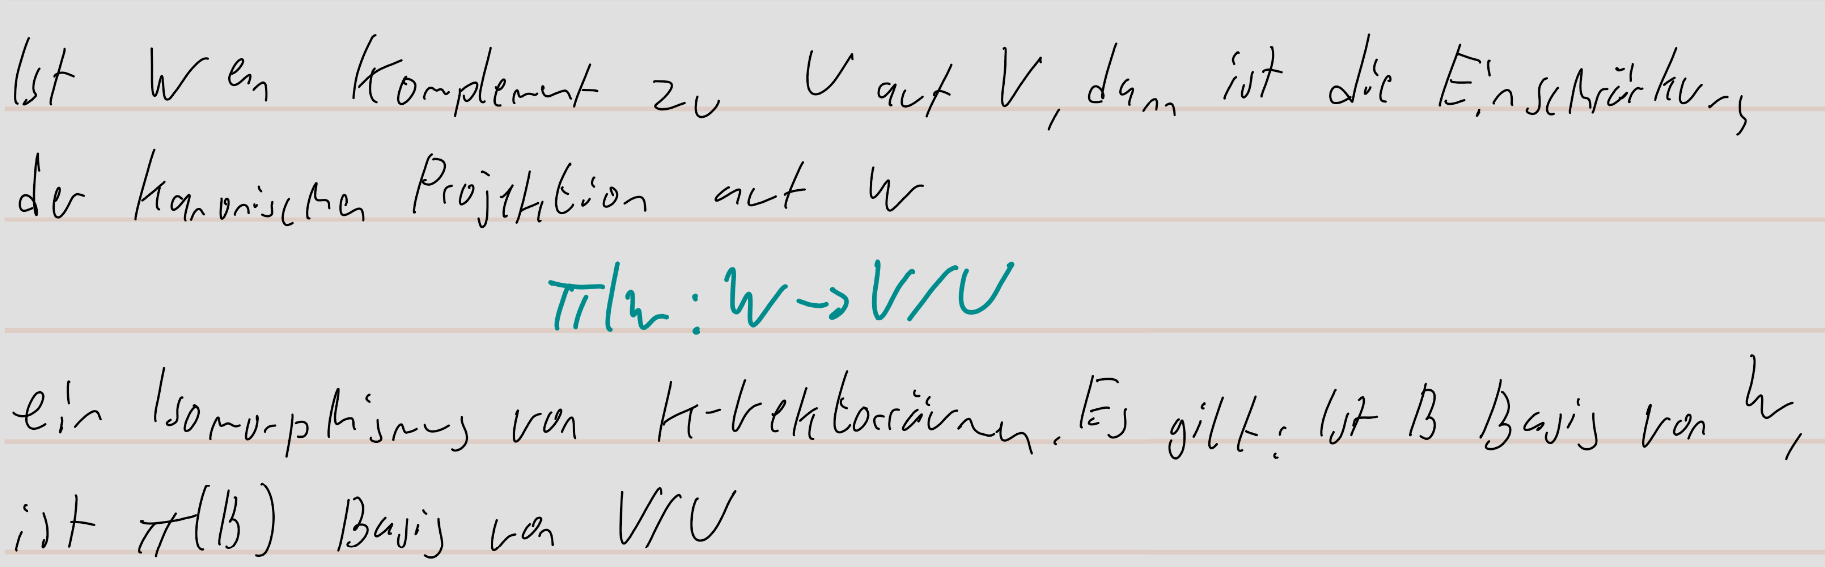 Ist W ein Komplement zu U auf V, dann ist die Einschränkung
der kanonischen Projektion auf W
π|w : W → V/U
ein Isomorphismus von K-Vektorräumen. Es gilt: Ist B Basis von W,
ist π(B) Basis von V/U